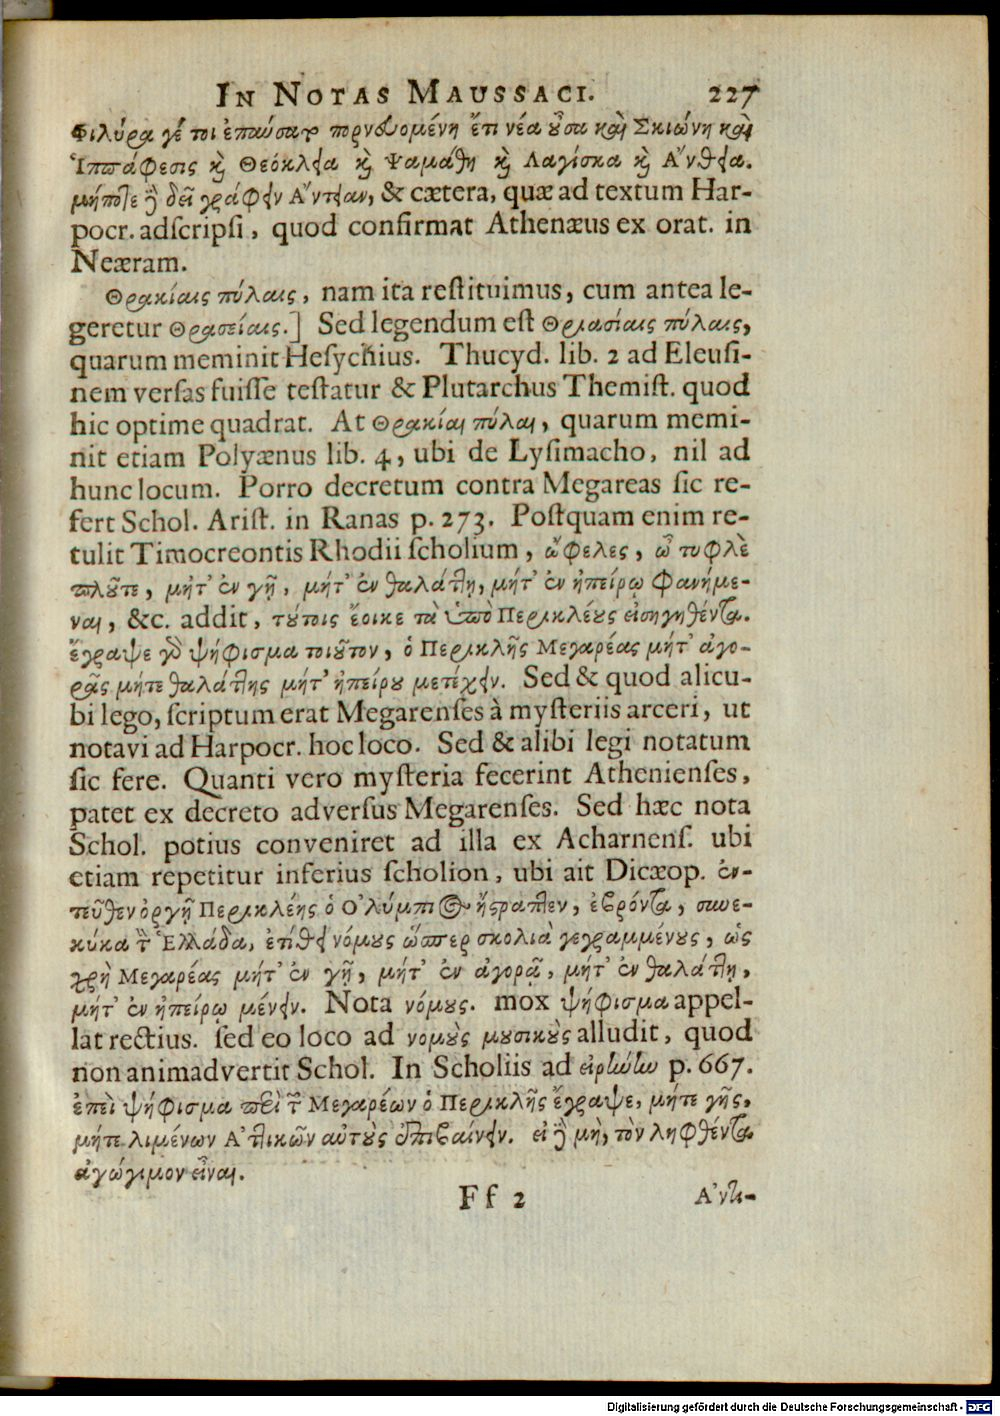 IN NOTAS MAUSSACI. 227
Φιλύρα γέ τοι ἐπαύσατο πορνευομένη ἔτι νέα οὖσα καὶ Σκιώνη καὶ
Ἱππάφεσις καὶ Θεόκλεια καὶ Ψαμάθη καὶ Λαγίσκα καὶ Ἄνθεια.
μήποτε δὲ δεῖ γράφειν Ἄντειαν, & cætera, quæ ad textum Har-
pocr. adscripsi, quod confirmat Athenæus ex orat. in
Neæram.
Θρακίαις πύλαις, nam ita restituimus, cum antea le-
geretur Θρασείαις.] Sed legendum est Θριασίαις πύλαις,
quarum meminit Hesychius. Thucyd. lib. 2 ad Eleusi-
nem versas fuisse testatur & Plutarchus Themist. quod
hic optime quadrat. At Θρακίαι πύλαι, quarum memi-
nit etiam Polyænus lib. 4, ubi de Lysimacho, nil ad
hunc locum. Porro decretum contra Megareas sic re-
fert Schol. Arist. in Ranas p. 273. Postquam enim re-
tulit Timocreontis Rhodii scholium, ὤφελες, ὦ τυφλὲ
πλοῦτε, μήτ' ἐν γῇ, μήτ' ἐν θαλάττῃ, μήτ' ἐν ἠπείρῳ Φανήμε-
ναι, &c. addit, τούτοις ἔοικε τὰ ὑπὸ Περικλέους εἰσηγηθέντα.
ἔγραψε γὰρ ψήφισμα τοιοῦτον, ὁ Περικλῆς Μεγαρέας μήτ' ἀγο-
ρᾶς μήτε θαλάττης μήτ' ἠπείρου μετέχειν. Sed & quod alicu-
bi lego, scriptum erat Megarenses à mysteriis arceri, ut
notavi ad Harpocr. hoc loco. Sed & alibi legi notatum
sic fere. Quanti vero mysteria fecerint Athenienses,
patet ex decreto adversus Megarenses. Sed hæc nota
Schol. potius conveniret ad illa ex Acharnens. ubi
etiam repetitur inferius scholion, ubi ait Dicæop. ἐν-
τεῦθεν ὀργῇ Περικλέης ὁ Ὀλύμπιος ἤστραπτεν, ἐβρόντα, συνε-
κύκα τὴν Ἑλλάδα, ἐτίθει νόμους ὥσπερ σκολιὰ γεγραμμένους, ὡς
χρὴ Μεγαρέας μήτ' ἐν γῇ, μήτ' ἐν ἀγορᾷ, μήτ' ἐν θαλάττῃ,
μήτ' ἐν ἠπείρῳ μένειν. Nota νόμους. mox ψήφισμα appel-
lat rectius. sed eo loco ad νομοὺς μουσικοὺς alludit, quod
non animadvertit Schol. In Scholiis ad εἰρήνην p. 667.
ἐπεὶ ψήφισμα περὶ τῶν Μεγαρέων ὁ Περικλῆς ἔγραψε, μήτε γῆς,
μήτε λιμένων Ἀττικῶν αὐτοὺς ἐπιβαίνειν. εἰ δὲ μὴ, τὸν ληφθέντα
ἀγώγιμον εἶναι.
Ff 2 Ἀντι-
Digitalisierung gefördert durch die Deutsche Forschungsgemeinschaft - DFG